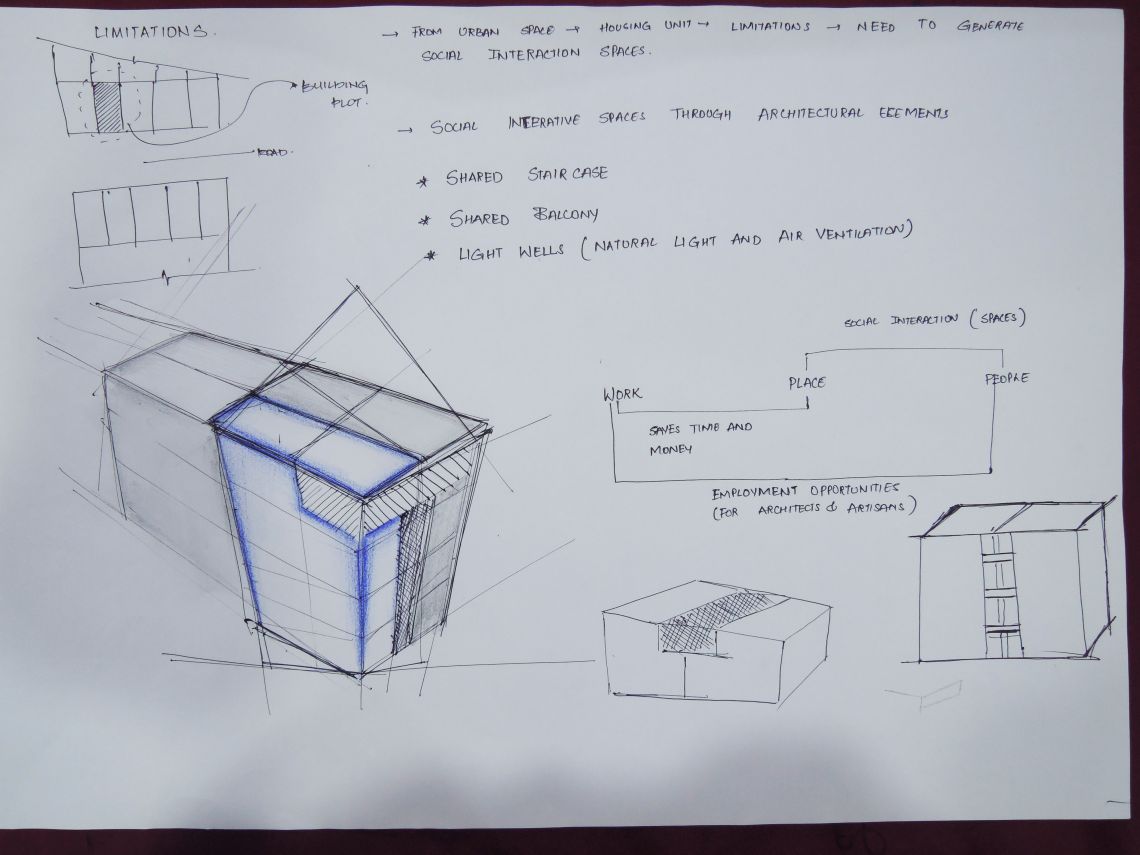 LIMITATIONS.
BUILDING
PLOT.
ROAD.
→ FROM URBAN SPACE → HOUSING UNIT → LIMITATIONS → NEED TO GENERATE
SOCIAL INTERACTION SPACES.
→ SOCIAL INTERATIVE SPACES THROUGH ARCHITECTURAL ELEMENTS
* SHARED STAIRCASE
* SHARED BALCONY
* LIGHT WELLS (NATURAL LIGHT AND AIR VENTILATION)
SOCIAL INTERACTION (SPACES)
WORK
PLACE
PEOPLE
SAVES TIME AND
MONEY
EMPLOYMENT OPPORTUNITIES
(FOR ARCHITECTS & ARTISANS)